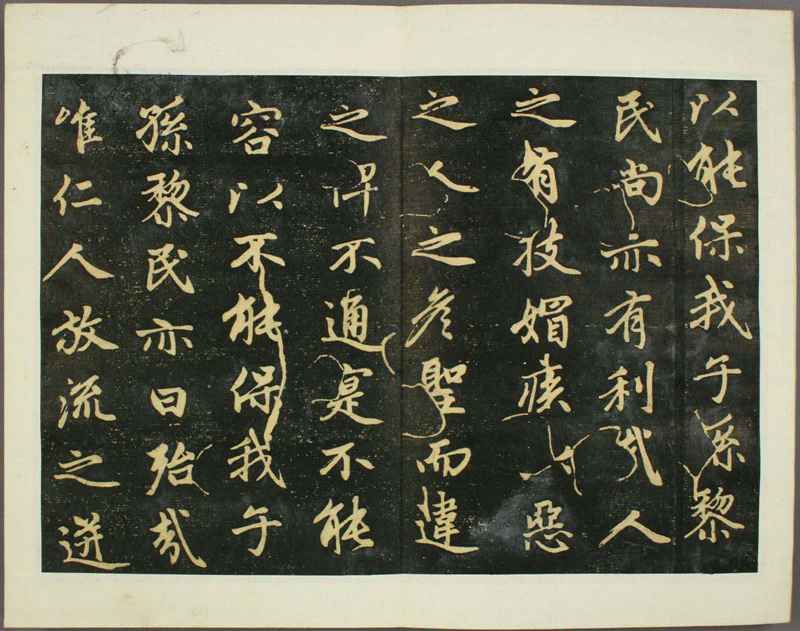 以能保我子孫黎
民尚亦有利哉人
之有技媢疾以惡
之人之彥聖而違
之俾不通寔不能
容以不能保我子
孫黎民亦曰殆哉
唯仁人放流之迸